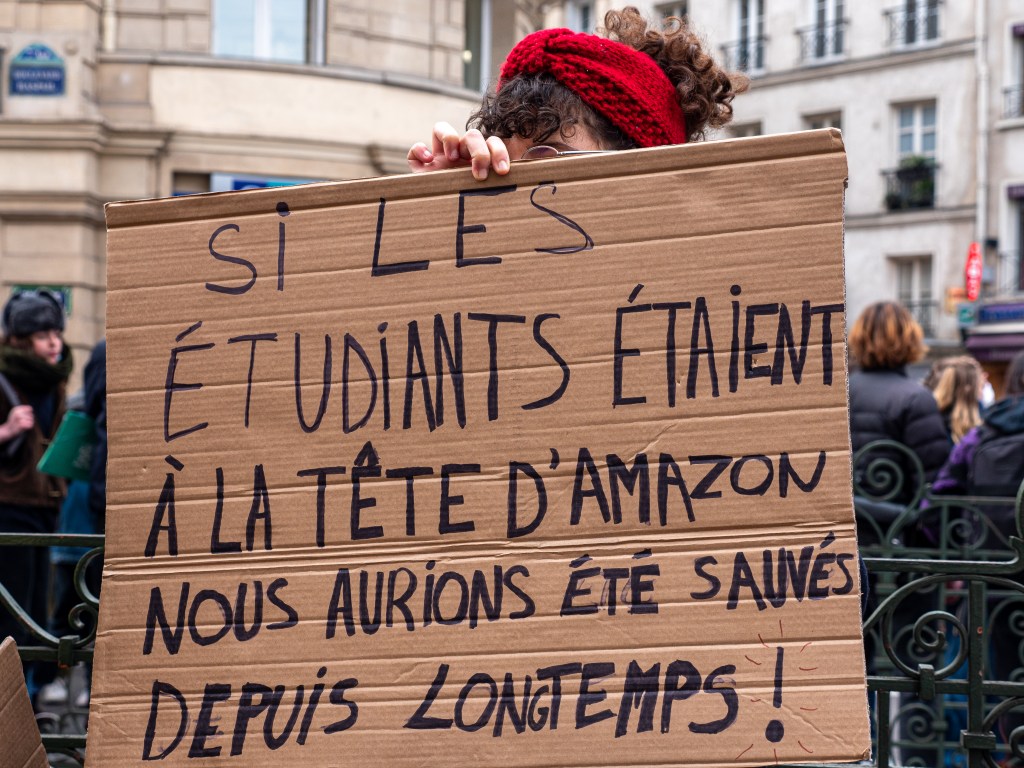 SI LES
ÉTUDIANTS ÉTAIENT
À LA TÊTE D'AMAZON
NOUS AURIONS ÉTÉ SAUVÉS
DEPUIS LONGTEMPS !